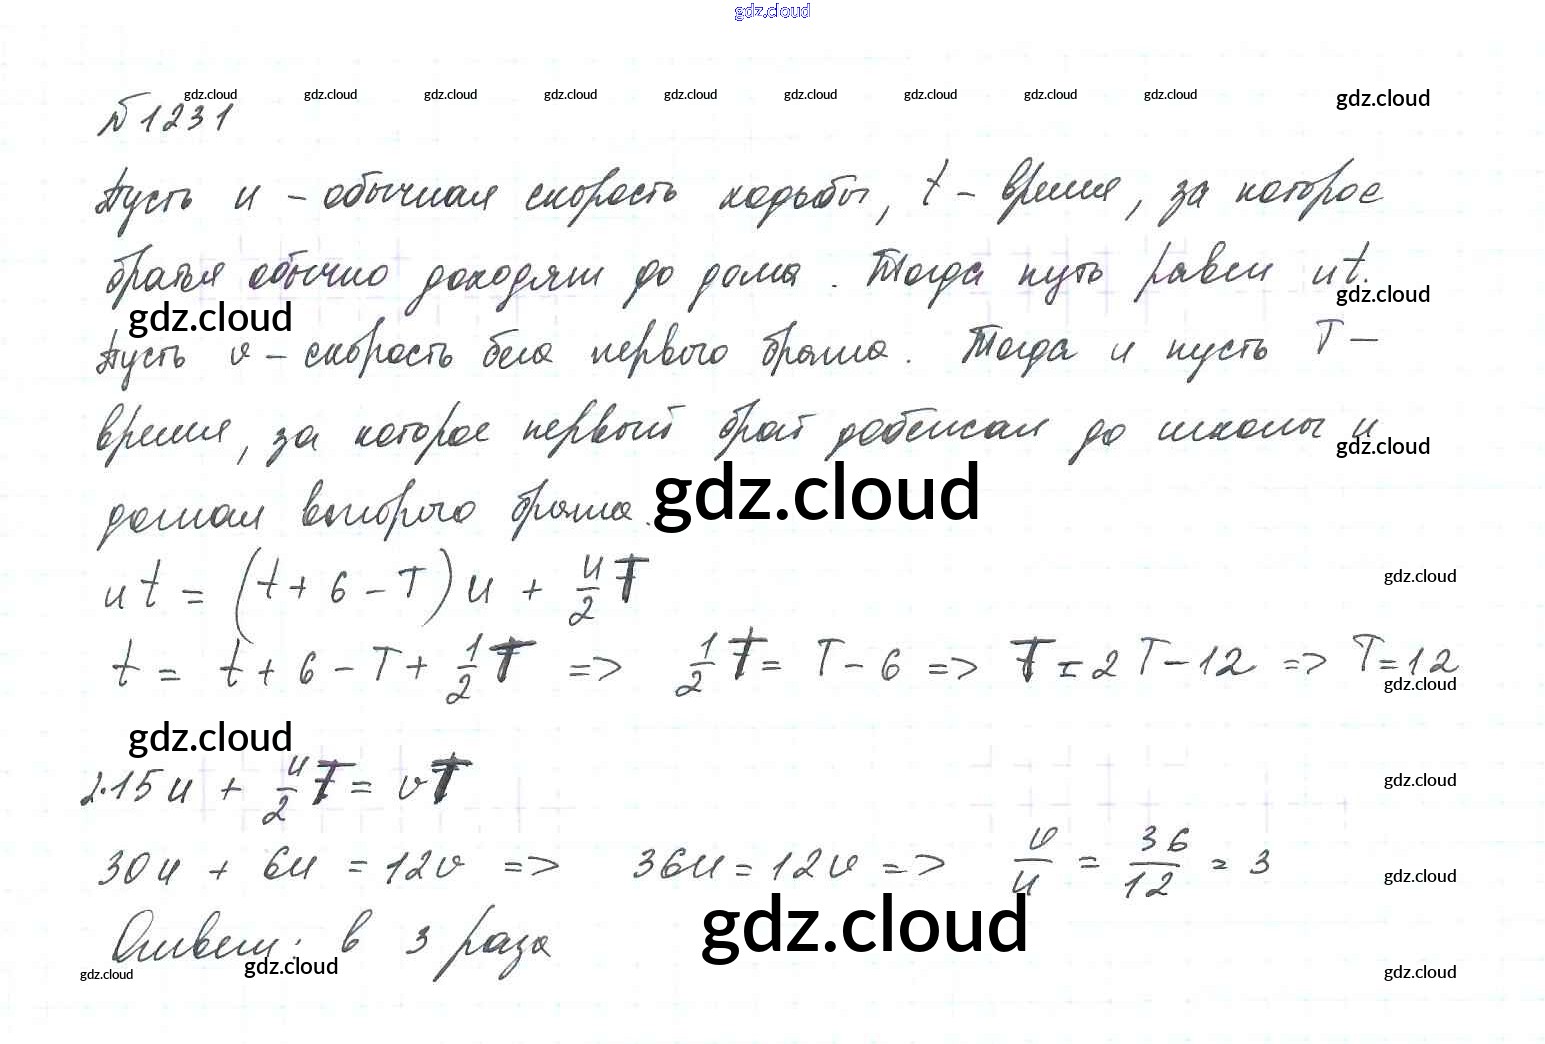 gdz.cloud
gdz.cloud gdz.cloud gdz.cloud gdz.cloud gdz.cloud gdz.cloud gdz.cloud gdz.cloud gdz.cloud gdz.cloud
№1231
Пусть u - обычная скорость ходьбы, t - время, за которое
братья обычно доходят до дома. Тогда путь равен ut.
gdz.cloud
gdz.cloud
Пусть v - скорость бега первого брата. Тогда и пусть T -
время, за которое первый брат добежал до школы и
gdz.cloud
догнал второго брата.
gdz.cloud
ut = (t + 6 - T)u + u/2 T
gdz.cloud
t = t + 6 - T + 1/2 T => 1/2 T = T - 6 => T = 2T - 12 => T = 12
gdz.cloud
gdz.cloud
2·15u + u/2 T = vT
gdz.cloud
30u + 6u = 12v => 36u = 12v => v/u = 36/12 = 3
gdz.cloud
gdz.cloud
Ответ: в 3 раза
gdz.cloud gdz.cloud gdz.cloud